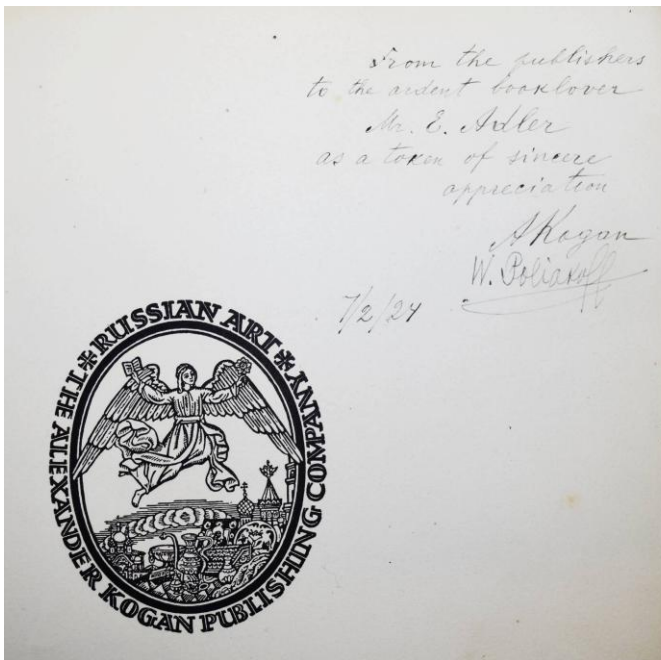 From the publishers
to the ardent booklover
Mr. E. Adler
as a token of sincere
appreciation
A Kogan
W. Poliakoff
7/2/24
* RUSSIAN ART *
THE ALEXANDER KOGAN PUBLISHING COMPANY